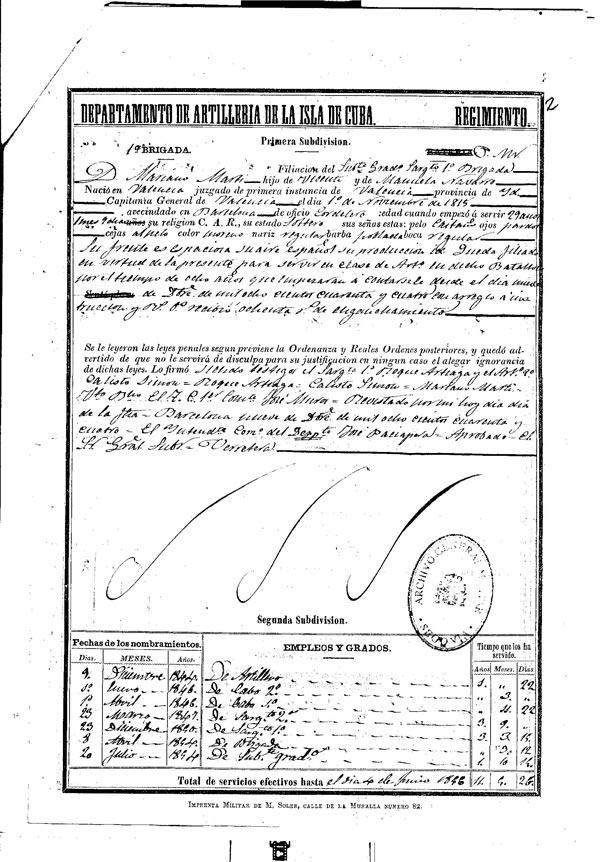 2
DEPARTAMENTO DE ARTILLERIA DE LA ISLA DE CUBA. REGIMIENTO.
Primera Subdivision.
1ª BRIGADA.
Filiacion del Subte. Gradº Sargtº 1º Brigada
D. Mariano Martí hijo de Vicente y de Manuela Navarro
Nació en Valencia juzgado de primera instancia de Valencia provincia de Id.
Capitania General de Valencia el dia 1º de Noviembre de 1815
avecindado en Barcelona de oficio Cordelero edad cuando empezó á servir 29 años
su religion C. A. R., su estado soltero sus señas estas: pelo Castaño ojos pardos
cejas al pelo color moreno nariz regular barba poblada boca regular
Su frente es espaciosa su aire español su producion id. Queda filiado
en virtud de la presente para servir en clase de Artº en dicho Batallon
por el tiempo de ocho años que empezarán á contarsele desde el dia nueve
de Dbre. de mil ocho cientos cuarenta y cuatro con arreglo á ins
truccion y Rl. recibió ochenta rs. de enganchamiento
Se le leyeron las leyes penales segun previene la Ordenanza y Reales Ordenes posteriores, y quedó ad-
vertido de que no le servirá de disculpa para su justificacion en ningun caso el alegar ignorancia
de dichas leyes. Lo firmó siendo testigos el Sargtº 1º Roque Arteaga y el Artº 2º
Calisto Simon = Roque Arteaga = Calisto Simon = Mariano Martí =
El T. C. 1er Comte. José Muros = Revistado por mi hoy dia
de la fha = Barcelona nueve de Dbre. de mil ocho cientos cuarenta y
cuatro = El Intend Com. del = Aprobado = El
Gral Subr.
ARCHIVO GENERAL MILITAR
Segunda Subdivision.
Fechas de los nombramientos. EMPLEOS Y GRADOS. Tiempo que los ha servido.
Dias. MESES. Años. Años. Meses. Dias
9. Diciembre 1844. De Artillero 1. " 22
1º Enero 1846. De Cabo 2º " 3. "
1º Abril 1846. De Cabo 1º " 11. 22
23 Marzo 1847. De Sargtº 2º 3. 9. "
23 Diciembre 1850. De Sargtº 1º 3. 3. 15
8 Abril 1854. De Brigada " 3. 12
20 Julio 1854 De Subte. gradº 1. 10. 14
Total de servicios efectivos hasta el dia 4 de Junio 1856 11.
IMPRENTA MILITAR DE M. SOLER, CALLE DE LA MURALLA NUMERO 82.